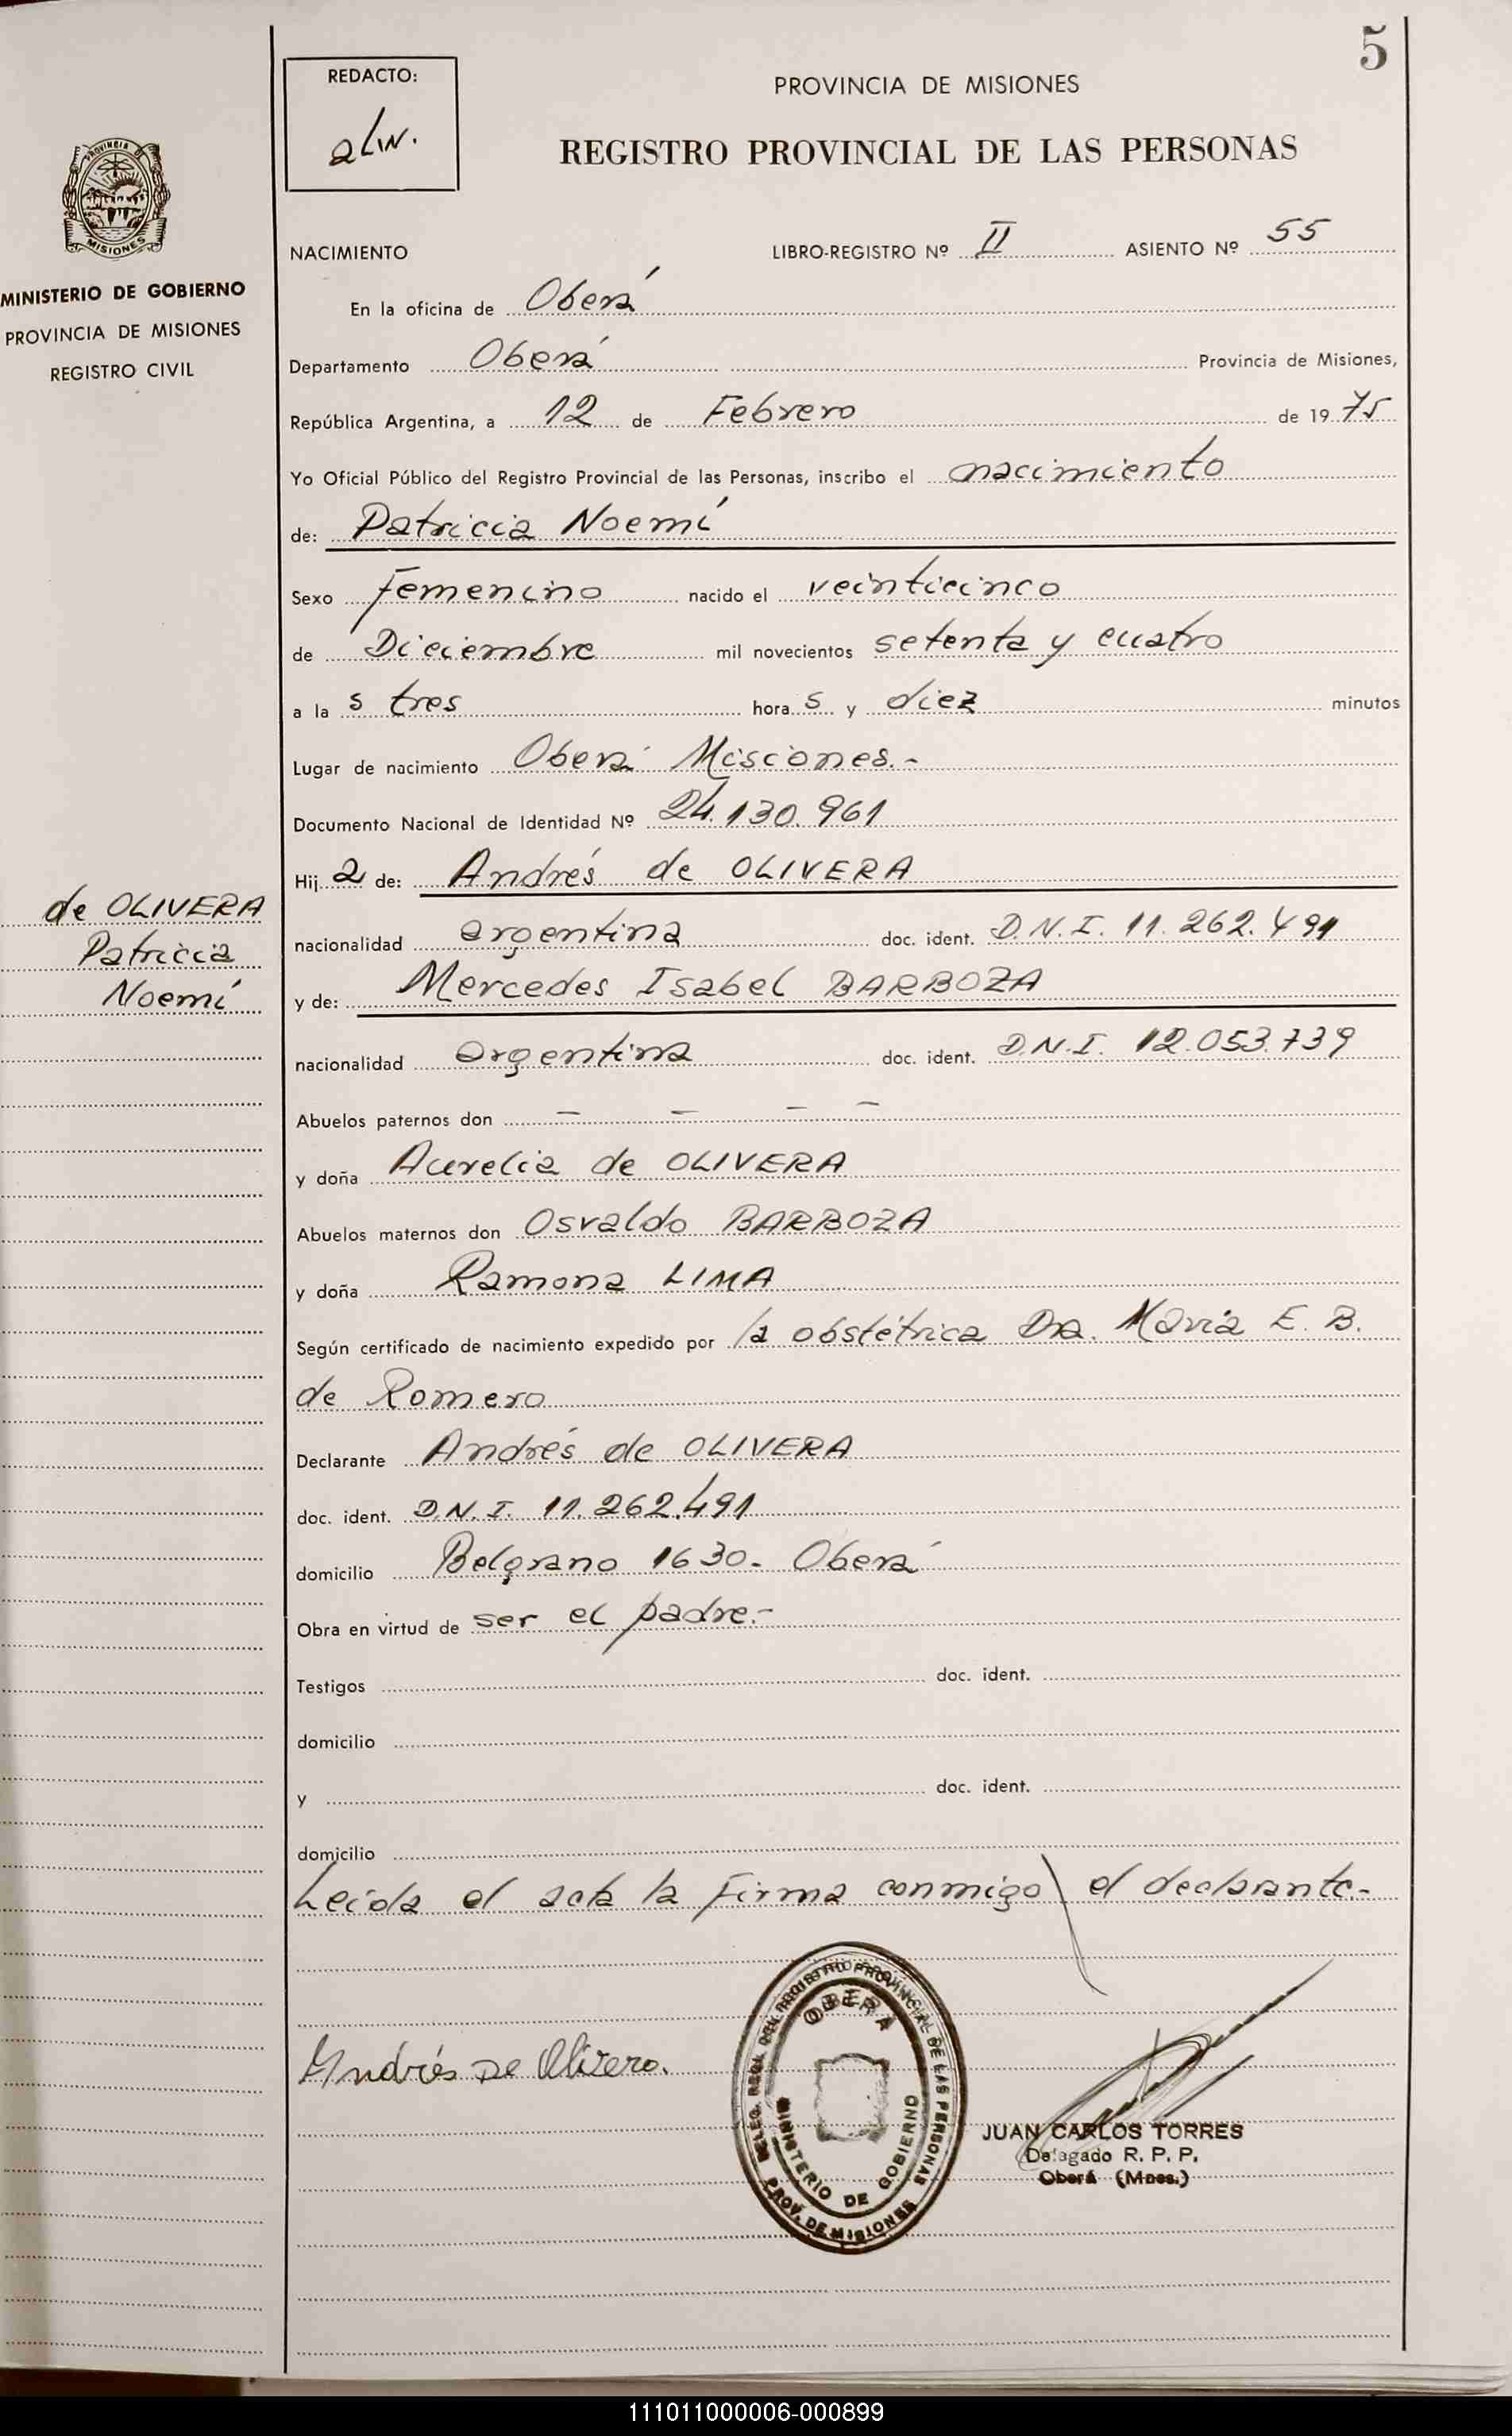 5
REDACTO:
PROVINCIA DE MISIONES
REGISTRO PROVINCIAL DE LAS PERSONAS
PROVINCIA D MISIONES
MINISTERIO DE GOBIERNO
PROVINCIA DE MISIONES
REGISTRO CIVIL
NACIMIENTO LIBRO-REGISTRO Nº II ASIENTO Nº 55
En la oficina de Oberá
Departamento Oberá Provincia de Misiones,
República Argentina, a 12 de Febrero de 1975
Yo Oficial Público del Registro Provincial de las Personas, inscribo el nacimiento
de: Patricia Noemí
Sexo Femenino nacido el veinticinco
de Diciembre mil novecientos setenta y cuatro
a la s tres hora s y diez minutos
Lugar de nacimiento Oberá Misiones.-
Documento Nacional de Identidad Nº 24.130.961
Hij a de: Andrés de OLIVERA
de OLIVERA
Patricia
Noemí
nacionalidad argentina doc. ident. D.N.I. 11.262.491
y de: Mercedes Isabel BARBOZA
nacionalidad argentina doc. ident. D.N.I. 12.053.739
Abuelos paternos don — — — —
y doña Aurelia de OLIVERA
Abuelos maternos don Osvaldo BARBOZA
y doña Ramona LIMA
Según certificado de nacimiento expedido por la obstétrica Dra. María E. B.
de Romero
Declarante Andrés de OLIVERA
doc. ident. D.N.I. 11.262.491
domicilio Belgrano 1630- Oberá
Obra en virtud de ser el padre.-
Testigos doc. ident.
domicilio
y doc. ident.
domicilio
Leída el acta la firma conmigo el declarante-
Andrés De Olivera.
DELEG. REGL. REGISTRO PROVINCIAL DE LAS PERSONAS
OBERA
MINISTERIO DE GOBIERNO
PROV. DE MISIONES
JUAN CARLOS TORRES
Delegado R. P. P.
Oberá (Mnes.)
111011000006-000899